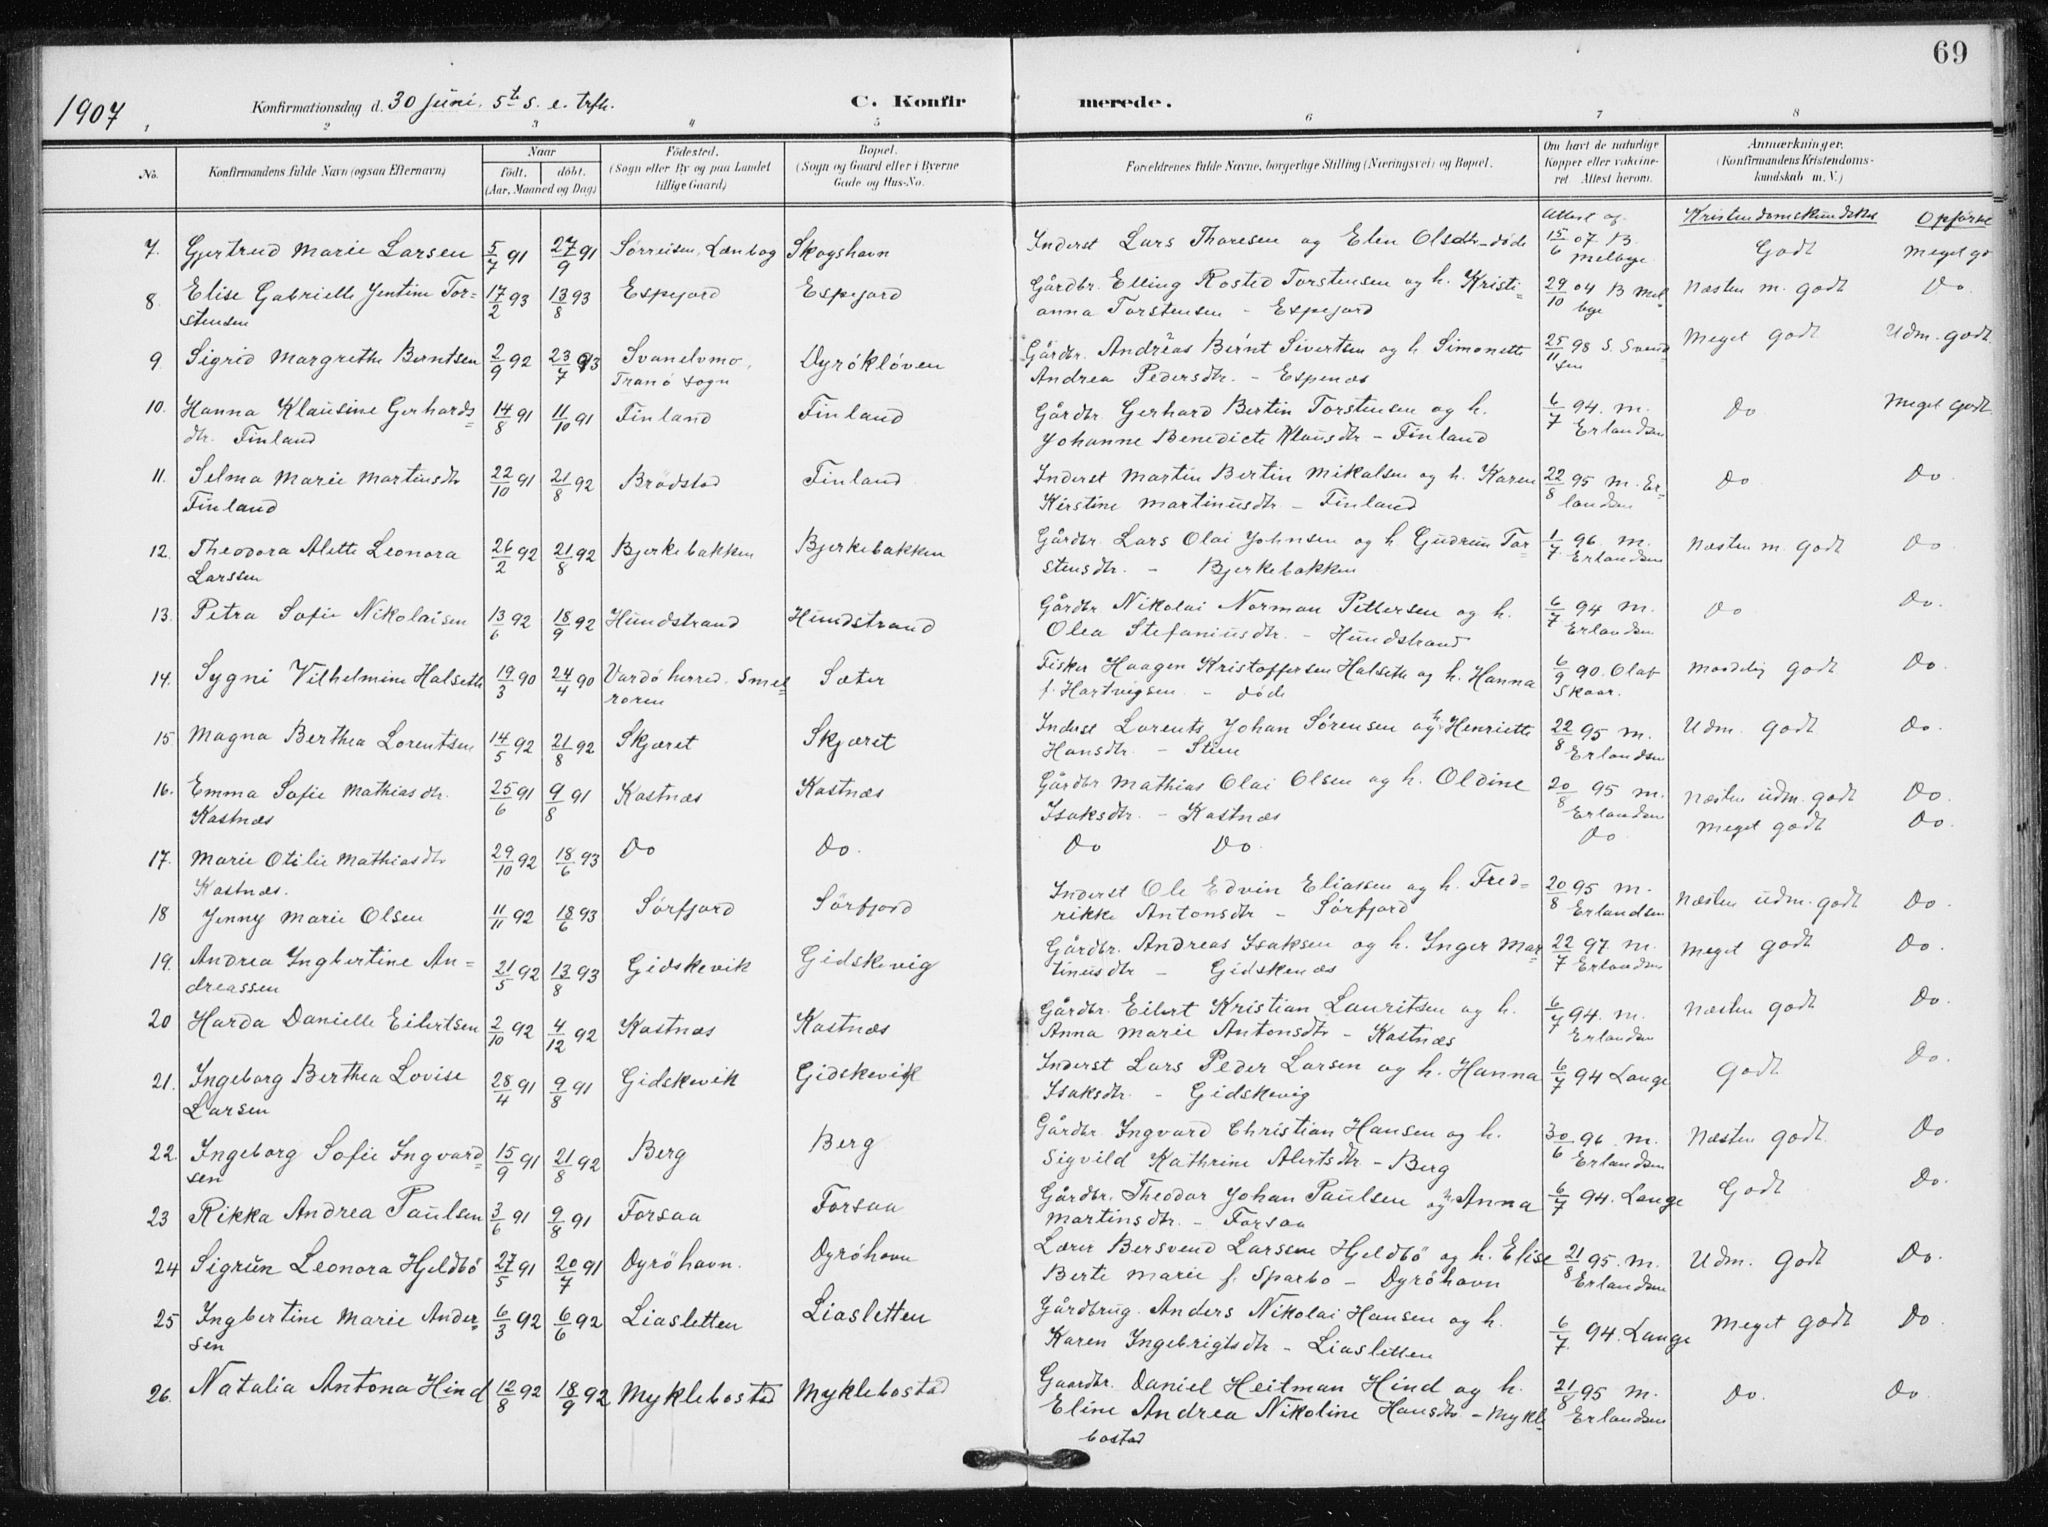 69
1907 Konfirmationsdag d. 30 Juni. 5te S. e. trfh. C. Konfirmerede.
1 2 3 4 5 6 7 8
No. Konfirmandens fulde Navn (ogsaa Efternavn) Naar født. døbt. (Aar, Maaned og Dag) Fødested. (Sogn eller By og paa Landet tillige Gaard) Bopæl. (Sogn og Gaard eller i Byerne Gade og Hus-No. Forældrenes fulde Navne, borgerlige Stilling (Næringsvei) og Bopæl. Om havt de naturlige Kopper eller vakcineret. Attest herom. Anmærkninger. (Konfirmandens Kristendomskundskab m. V.)
Attest af Kristendomskundskab Opførse
7. Gjertrud Marie Larsen 5/7 91 27/9 91 Sörreisen, Lænbog Skogshavn Inderst Lars Thoresen og Elen Olsdtr - døde 15/6 07 B. Melbye. Godt Meget go
8. Elise Gabrielle Jentine Tor-
stensen 17/2 93 13/8 93 Espejord Espejord Gårdbr. Elling Rosted Torstensen og h. Kristi-
anna Torstensen - Espejord 29/10 04 B Mel-
bye Næsten m. godt Do.
9 Sigrid Margrethe Berntsen 2/9 92 23/7 93 Svanelvmo,
Tranö sogn Dyröklöven Gårdbr. Andreas Bernt Sivertsen og h. Simonette
Andrea Pedersdtr. - Espenæs 25/11 98 S. Svend-
sen Meget godt Udm. godt.
10. Hanna Klausine Gerhards-
dtr. Finland 14/8 91 11/10 91 Finland Finland Gårdbr. Gerhard Bertin Torstensen og h.
Johanne Benedicte Klausdtr - Finland 6/7 94. M.
Erlandsen Do Meget godt.
11. Selma Marie Martinsdtr
Finland 22/10 91 21/8 92 Brödstad Finland Inderst Martin Bertin Mikalsen og h. Karen
Kirstine Martinusdtr - Finland 22/8 95 M. Er-
landsen Do Do.
12. Theodora Alette Leonora
Larssen 26/2 92 21/8 92 Bjerkebakken Bjerkebakken Gårdbr. Lars Olai Johnsen og h Gudrun Tor-
stensdtr. - Bjerkebakken 1/7 96. M.
Erlandsen Næsten m. godt Do
13. Petra Sofie Nikolaisen 13/6 92 18/9 92 Hundstrand Hundstrand Gårdbr Nikolai Norman Pettersen og h.
Olea Stefaniusdtr. - Hundstrand 6/7 94 M.
Erlandsen Do Do.
14. Sygni Vilhelmine Halseth 19/3 90 24/4 90 Vardö herred. Smel-
roren Sæter Fisker Haagen Kristoffersen Halseth og h. Hanna
f. Hartvigsen. - døde 6/9 90. Olaf
Skaar. Maadelig godt Do.
15 Magna Berthea Lorentsen 14/5 92 21/8 92 Skjæret Skjæret Inderst Lorents Johan Sörensen og h Henriette
Hansdtr. - Steen 22/8 95 M.
Erlandsen Udm. godt Do.
16. Emma Sofie Mathiasdtr.
Kastnæs 25/6 91 9/8 91 Kastnæs Kastnæs Gårdbr Mathias Olai Olsen og h. Oldine
Isaksdtr. - Kastnæs 20/8 95 M.
Erlandsen Næsten udm. godt Do.
17. Marie Otilie Mathiasdtr
Kastnæs. 29/10 92 18/6 93 Do Do. Do Do. Do Meget godt Do.
18 Jenny Marie Olsen 11/11 92 18/6 93 Sörfjord Sörfjord Inderst Ole Edvin Eliassen og h. Fred-
rikke Antonsdtr - Sörfjord 20/8 95 M.
Erlandsen Næsten udm. godt Do.
19. Andrea Ingbertine An-
dreassen 21/5 92 13/8 93 Gidskevik Gidskevig Gårdbr. Andreas Isaksen og h. Inger Mar-
tinusdtr - Gidskenæs 22/7 97. M.
Erlandsen Meget godt Do.
20 Harda Danielle Eilertsen 2/10 92 4/12 92 Kastnæs Kastnæs Gårdbr. Eilert Kristian Lauritsen og h.
Anna Marie Antonsdtr - Kastnæs 6/7 94. M.
Erlandsen Næsten godt Do.
21. Ingeborg Berthea Lovise
Larsen 28/4 91 9/8 91 Gidskevik Gidskevik Inderst Lars Peder Larsen og h. Hanna
Isaksdtr. - Gidskevig 6/7 94 Lange Godt Do.
22. Ingeborg Sofie Ingvard-
sen 15/9 91 21/8 92 Berg Berg Gårdbr. Ingvard Christian Hansen og h.
Sigvild Kathrine Alertsdtr - Berg 30/6 96. M.
Erlandsen Næsten godt. Do
23 Rikka Andrea Paulsen 3/6 91 9/8 91 Forsaa Forsaa Gårdbr. Theodor Johan Paulsen og h. Anna
Martinsdtr. - Forsaa 6/7 94. Lange Godt Do.
24 Sigrun Leonora Hjeldbö 27/5 91 20/7 91 Dyröhavn. Dyröhavn Lærer Bersvend Larsen Hjeldbö og h. Elise
Berte Marie f. Sparbo - Dyröhavn 21/8 95. M.
Erlandsen Udm. godt Do.
25 Ingbertine Marie Ander-
sen 6/3 92 6/6 92 Liasletten Liasletten Gårdbrug. Anders Nikolai Hansen og h.
Karen Ingebrigtsdtr - Liasletten 6/7 94. Lange Meget godt Do.
26. Natalia Antona Hind 12/8 92 18/9 92 Myklebostad Myklebostad Gaardbr. Daniel Heitman Hind og h.
Eline Andrea Nikoline Hansdtr - Mykle-
bostad 21/8 95 M.
Erlandsen Do. Do.